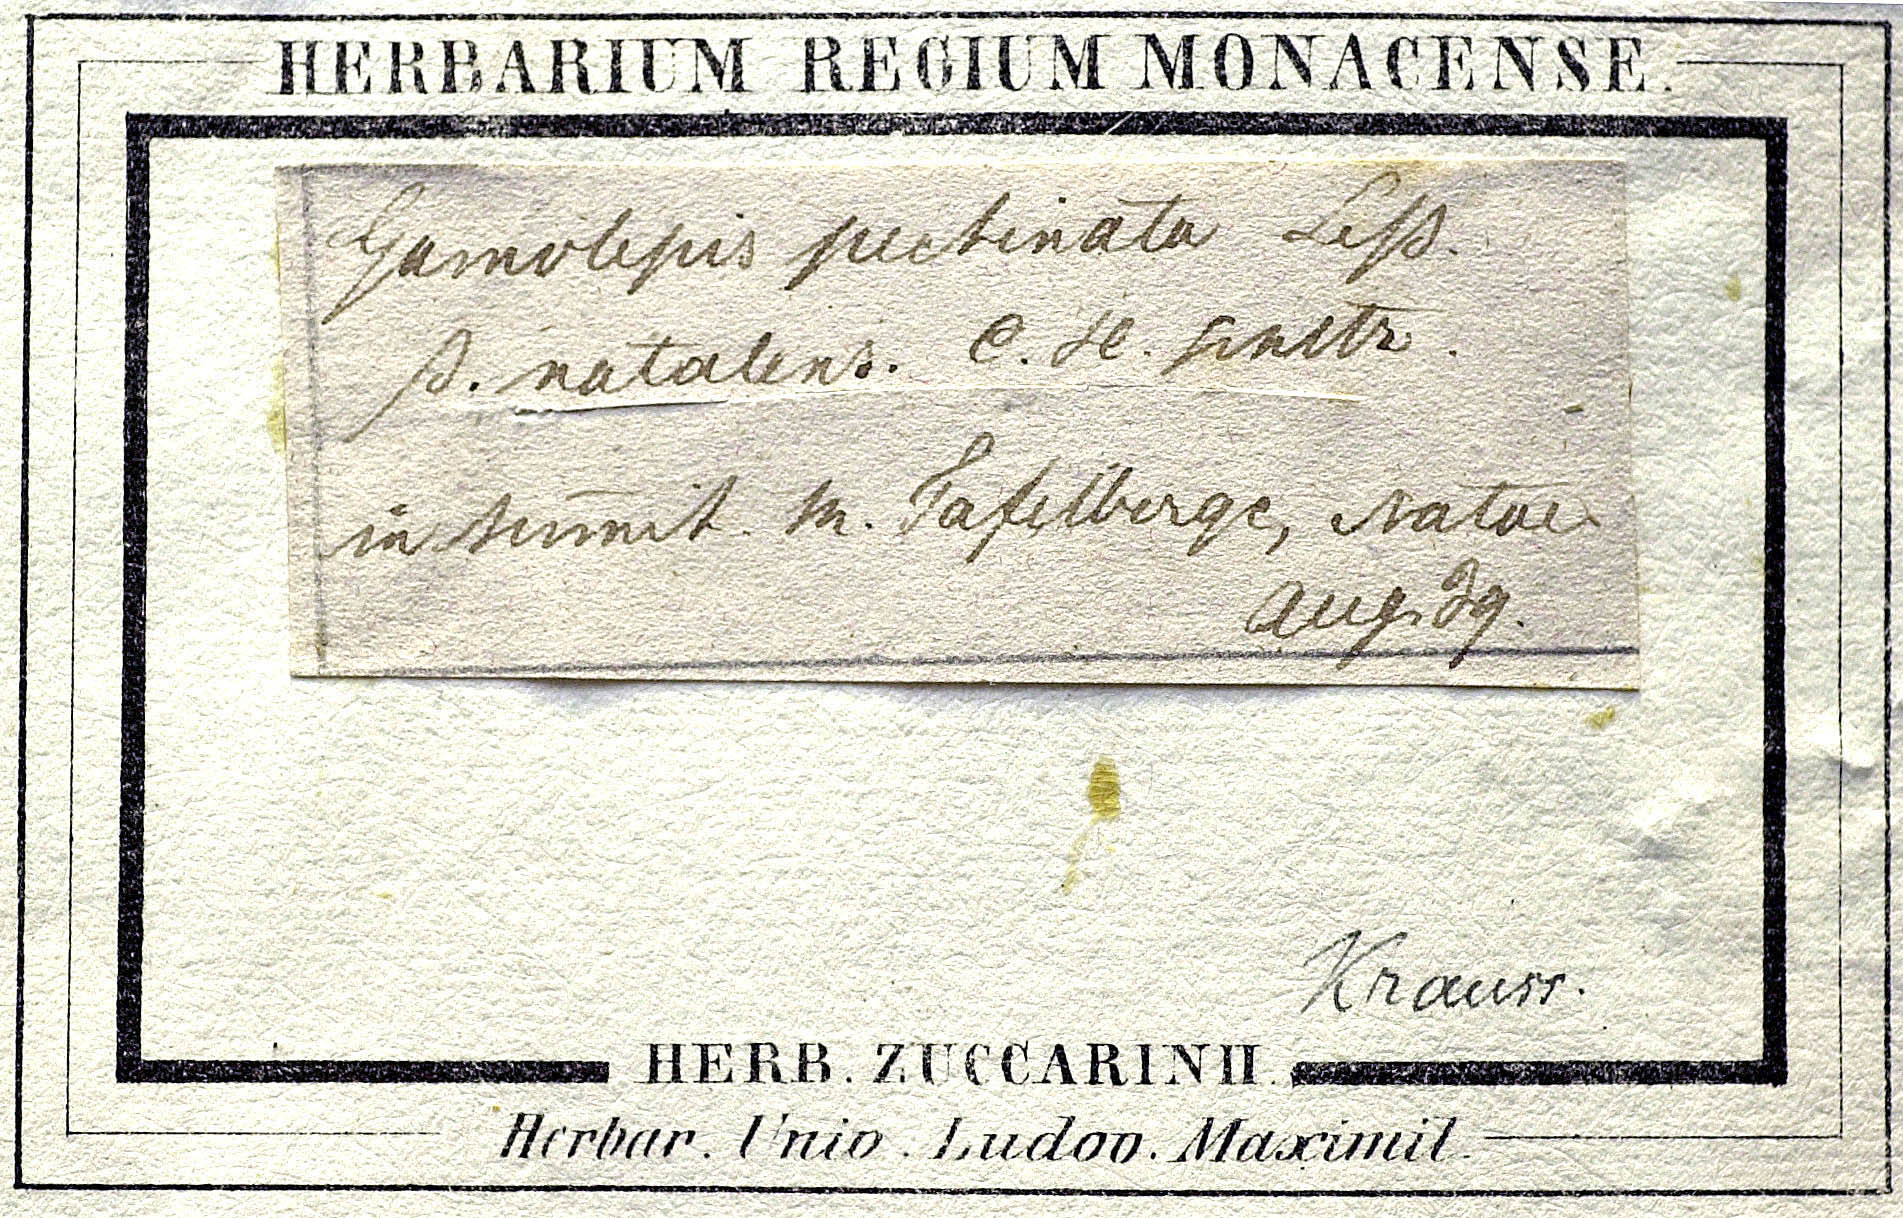 HERBARIUM REGIUM MONACENSE.
Gamolepis pectinata Less.
β. natalens. C. H. Schltz.
in sum̄it. m. Tafelberge, Natal
Aug. 39.
Krauss.
HERB. ZUCCARINII.
Herbar. Univ. Ludov. Maximil.